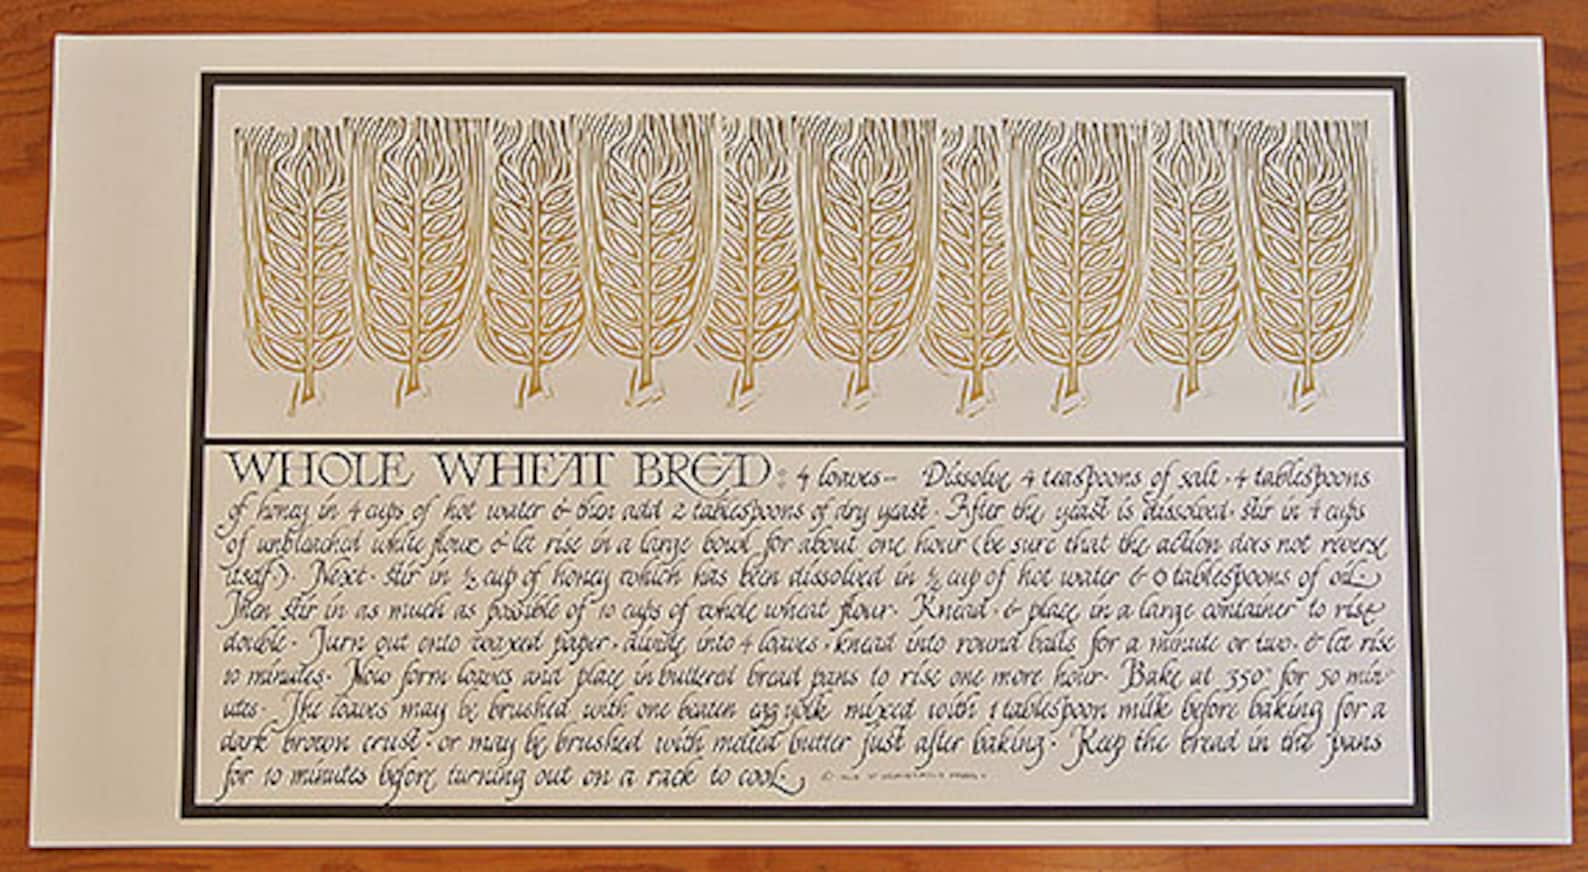 WHOLE WHEAT BREAD: 4 loaves— Dissolve 4 teaspoons of salt · 4 tablespoons
of honey in 4 cups of hot water & then add 2 tablespoons of dry yeast · After the yeast is dissolved · stir in 4 cups
of unbleached white flour & let rise in a large bowl for about one hour (be sure that the action does not reverse
itself.) · Next · stir in ½ cup of honey which has been dissolved in ½ cup of hot water & tablespoons of oil
Then stir in as much as possible of 10 cups of whole wheat flour · Knead · & place in a large container to rise
double · Turn out onto waxed paper · divide into 4 loaves · knead into round balls for a minute or two · & let rise
10 minutes · Now form loaves and place in buttered bread pans to rise one more hour · Bake at 350° for 50 min-
utes · The loaves may be brushed with one beaten egg yolk mixed with 1 tablespoon milk before baking for a
dark brown crust · or may be brushed with melted butter just after baking · Keep the bread in the pans
for 10 minutes before turning out on a rack to cool ·